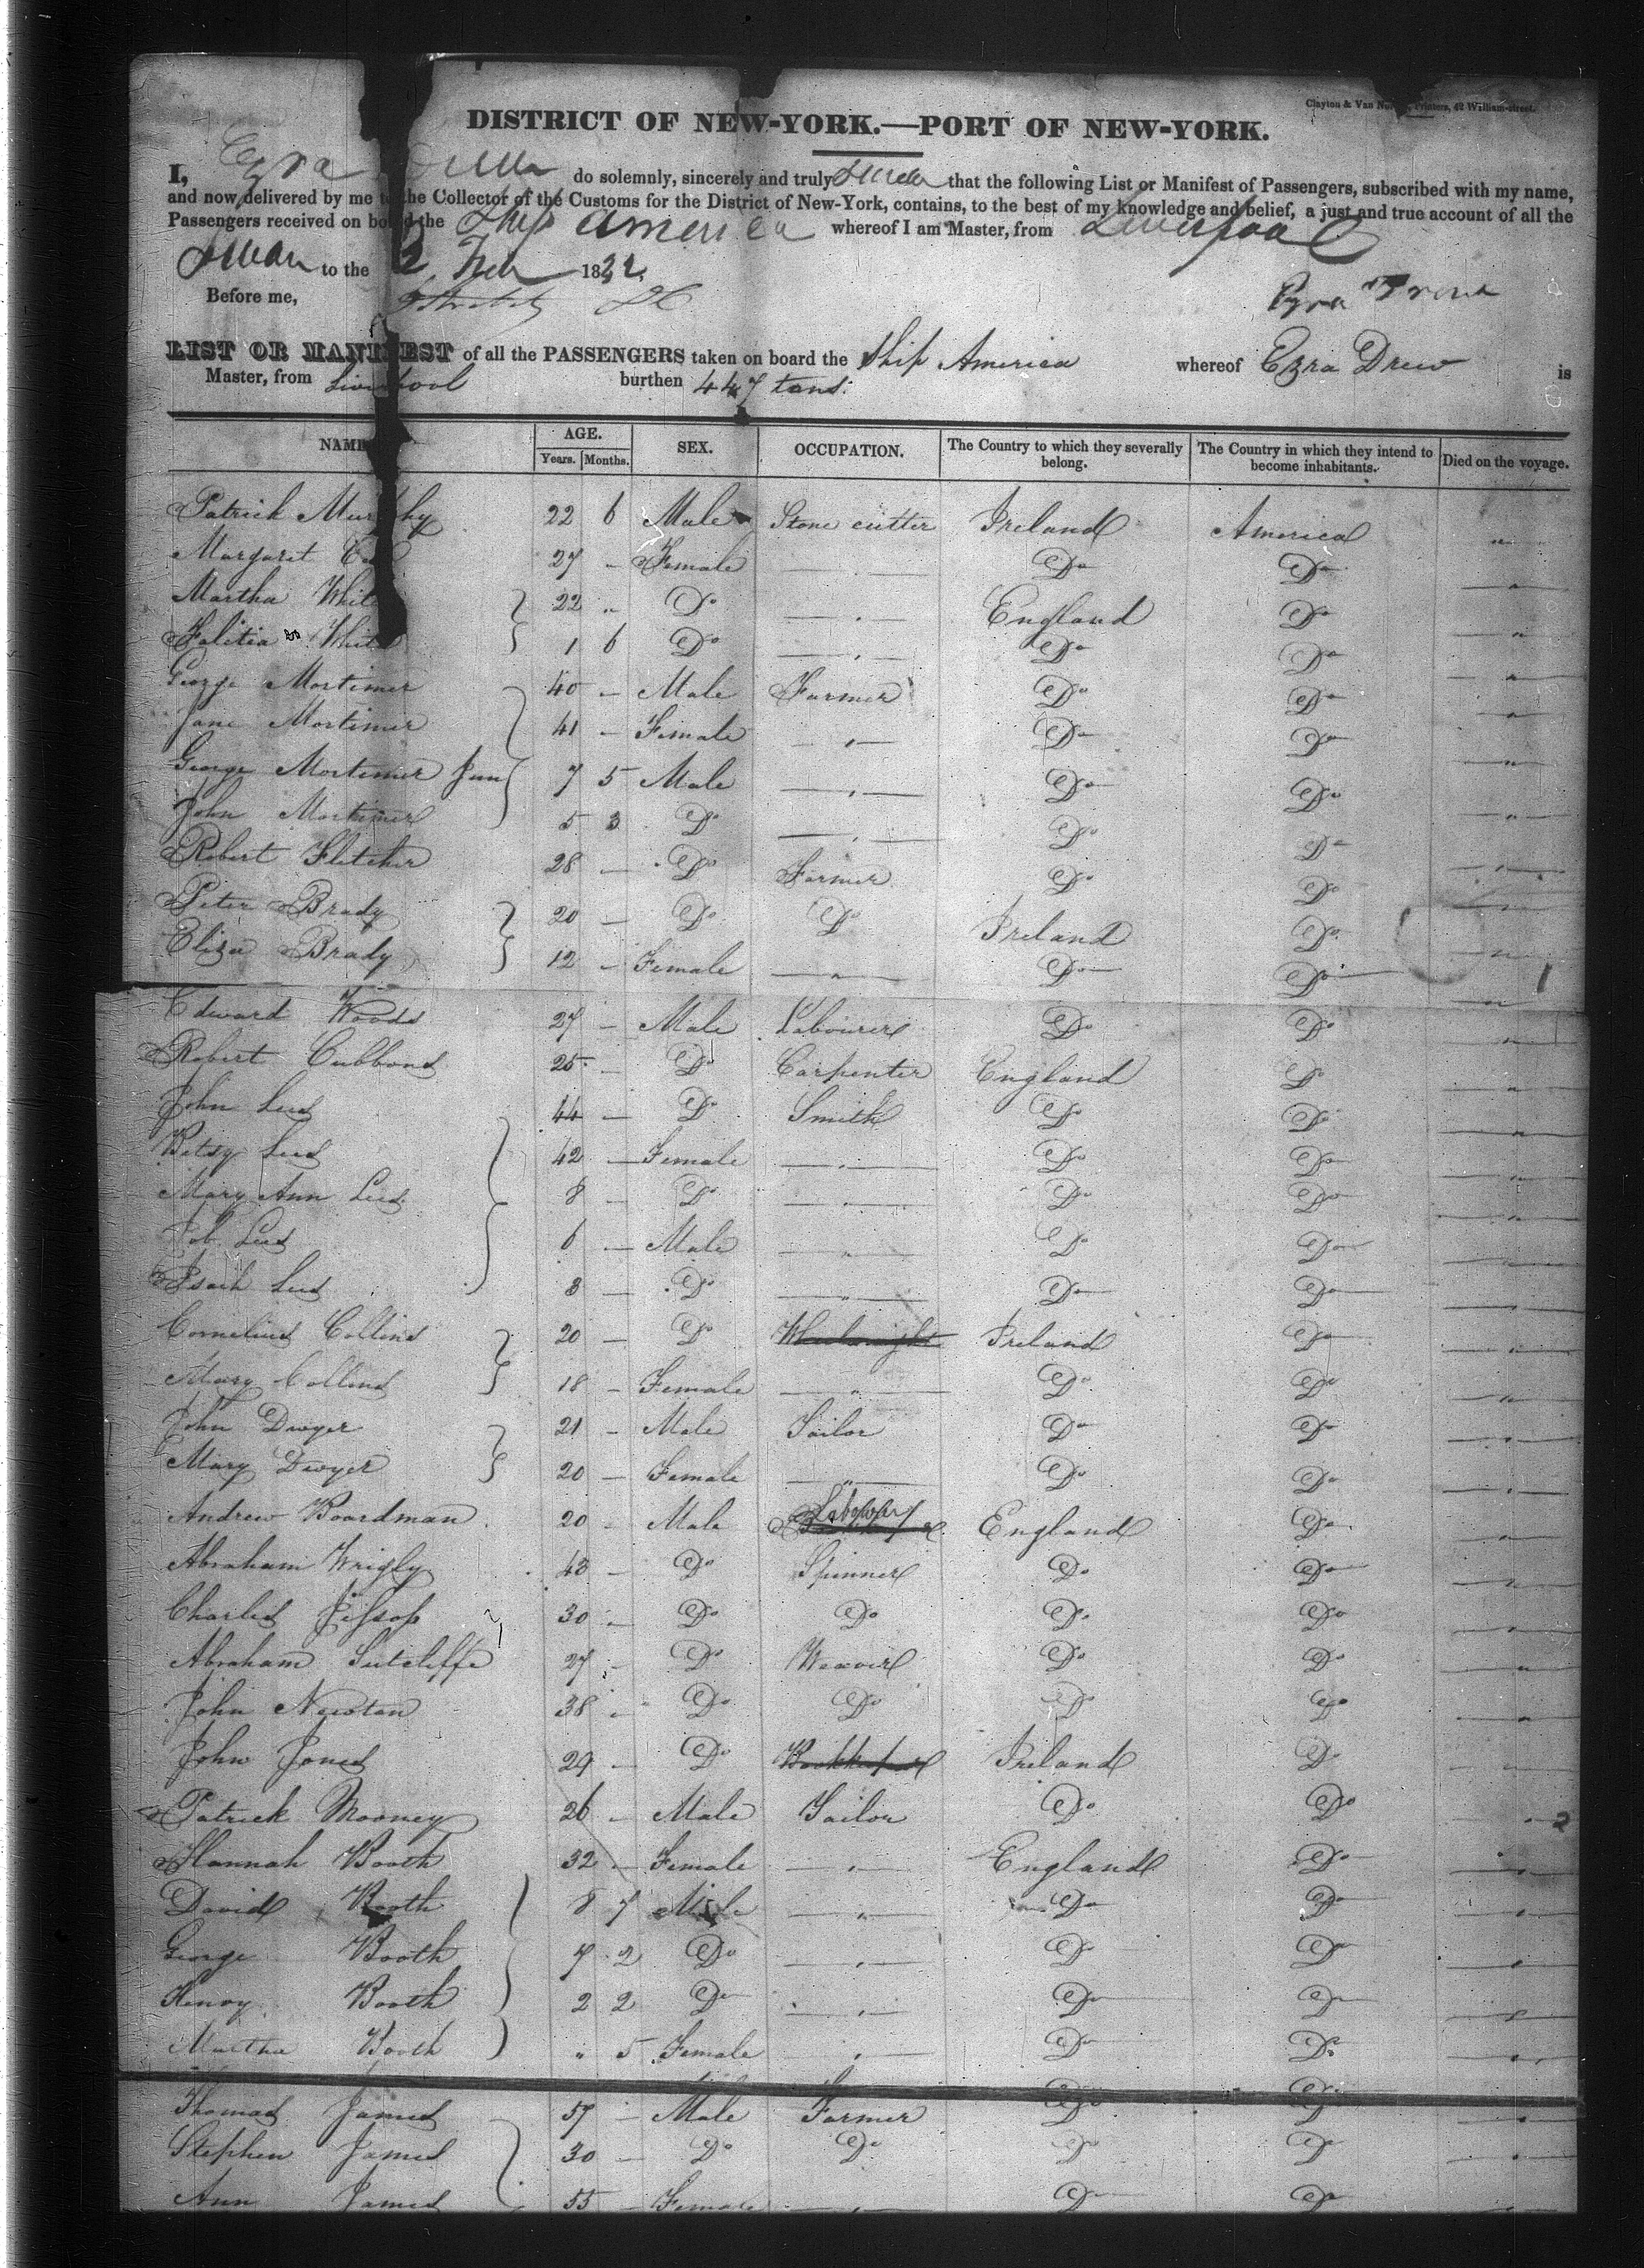 Clayton & Van Printers, 42 William-street.
DISTRICT OF NEW-YORK.—PORT OF NEW-YORK.
I, Ezra do solemnly, sincerely and truly that the following List or Manifest of Passengers, subscribed with my name,
and now delivered by me to the Collector of the Customs for the District of New-York, contains, to the best of my knowledge and belief, a just and true account of all the
Passengers received on board the Ship America whereof I am Master, from Liverpool
to the 2 1832
Before me, Ezra Drew
LIST OR MANIFEST of all the PASSENGERS taken on board the Ship America whereof Ezra Drew is
Master, from Liverpool burthen 447 tons:
NAME AGE. SEX. OCCUPATION. The Country to which they severally belong. The Country in which they intend to become inhabitants. Died on the voyage.
Years. Months.
Patrick Murphy 22 6 Male Stone cutter Ireland America "
Margaret 27 - Female " Do Do "
Martha White 22 " Do " England Do "
White 1 6 Do " Do Do "
George Mortimer 40 - Male Farmer Do Do "
Jane Mortimer 41 - Female " Do Do "
George Mortimer Jun 7 5 Male " Do Do "
John Mortimer 5 3 Do " Do Do "
Robert Fletcher 28 - Do Farmer Do Do "
Peter Brady 20 - Do Do Ireland Do "
Eliza Brady 12 - Female " Do Do "
Edward Woods 27 - Male Labourer Do Do "
Robert Cubbond 25 - Do Carpenter England Do "
John Leed 44 - Do Smith Do Do "
Betsy Leed 42 - Female " Do Do "
Mary Ann Leed 8 - Do " Do Do "
Job Leed 6 - Male " Do Do "
Isaih Leed 8 - Do " Do Do "
Cornelius Collins 20 - Do Wheelwright Ireland Do "
Mary Collins 18 - Female " Do Do "
John Dwyer 21 - Male Tailor Do Do "
Mary Dwyer 20 - Female " Do Do "
Andrew Boardman 20 - Male Labourer England Do "
Abraham Wrigly 43 - Do Spinner Do Do "
Charles Jessop 30 - Do Do Do Do "
Abraham Sutcliffe 27 - Do Weaver Do Do "
John Newton 38 " Do Do Do Do "
John Jones 29 - Do Bookkeeper Ireland Do "
Patrick Mooney 26 - Male Tailor Do Do " 2
Hannah Booth 32 - Female " England Do "
David Booth 8 7 Male " Do Do "
George Booth 7 2 Do " Do Do "
Henry Booth 2 2 Do " Do Do "
Martha Booth " 5 Female " Do Do "
Thomas James 57 - Male Farmer Do Do "
Stephen James 30 - Do Do Do Do "
Ann James 55 - Female " Do Do "